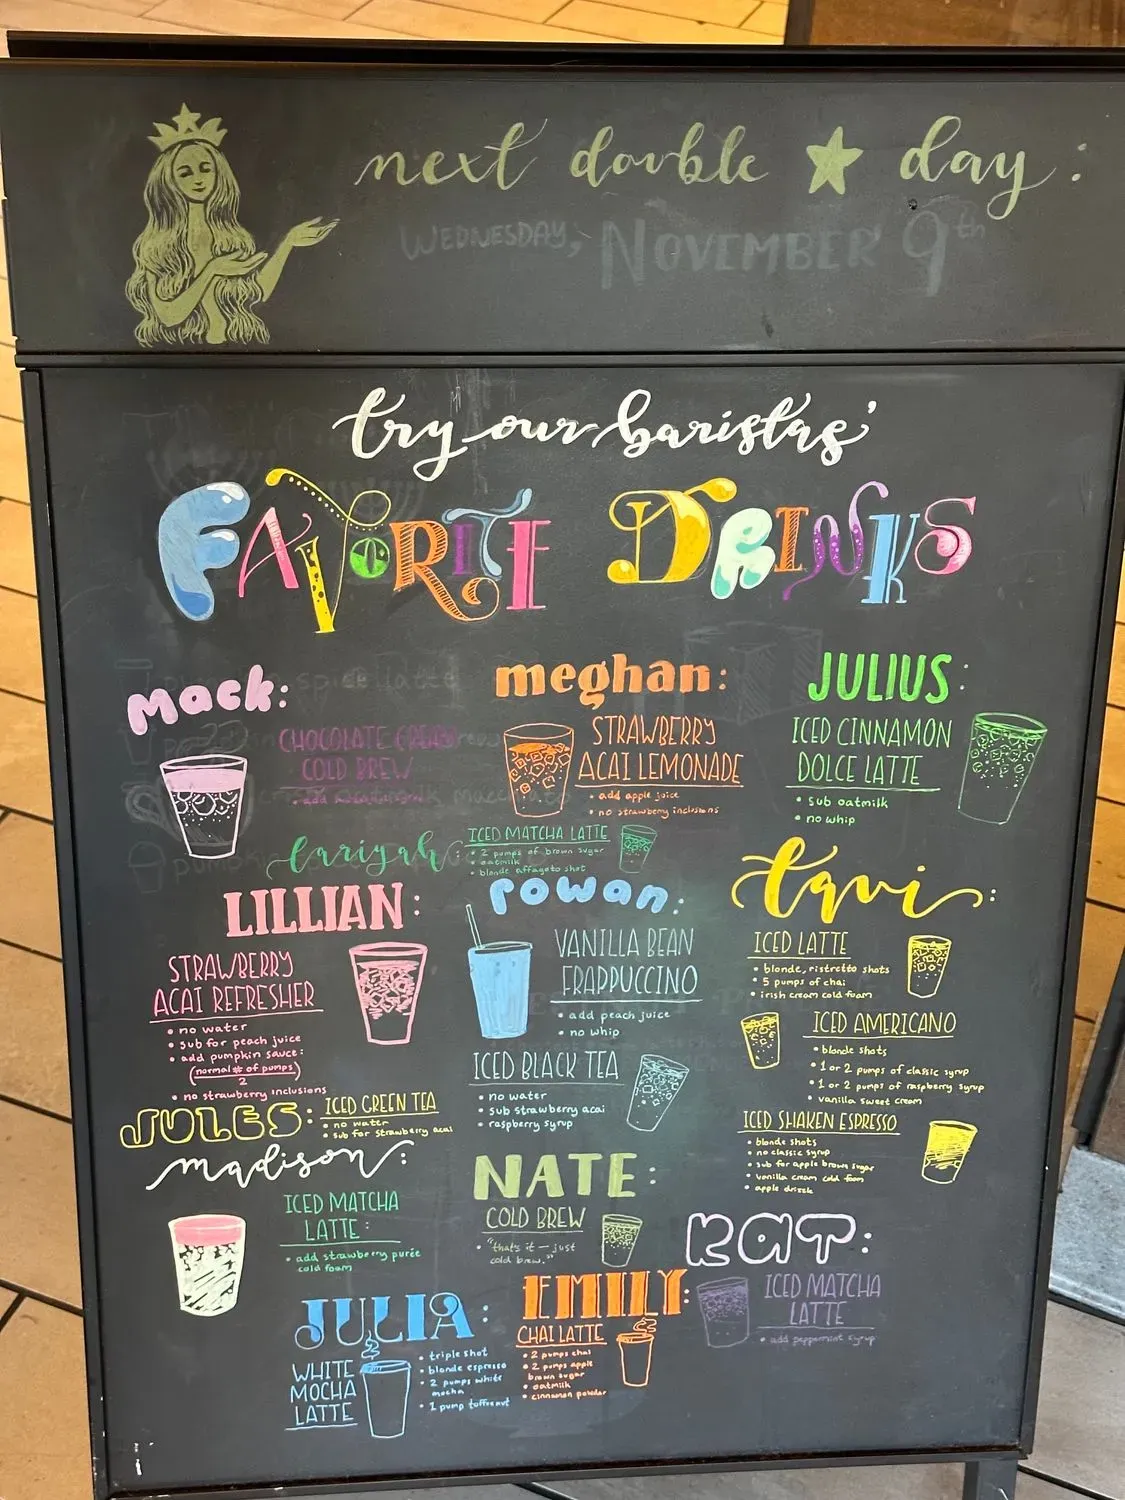 next double ★ day:
WEDNESDAY, NOVEMBER 9th
try our baristas'
FAVORITE DRINKS
mack:
CHOCOLATE CREAM
COLD BREW
• add
meghan:
STRAWBERRY
ACAI LEMONADE
• add apple juice
• no strawberry inclusions
JULIUS:
ICED CINNAMON
DOLCE LATTE
• sub oatmilk
• no whip
cariyah:
ICED MATCHA LATTE
• 2 pumps of brown sugar
• oatmilk
• blonde affogato shot
LILLIAN:
STRAWBERRY
ACAI REFRESHER
• no water
• sub for peach juice
• add pumpkin sauce:
(normal # of pumps)
2
• no strawberry inclusions
rowan:
VANILLA BEAN
FRAPPUCCINO
• add peach juice
• no whip
ICED BLACK TEA
• no water
• sub strawberry acai
• raspberry syrup
tavi:
ICED LATTE
• blonde, ristretto shots
• 5 pumps of chai
• irish cream cold foam
ICED AMERICANO
• blonde shots
• 1 or 2 pumps of classic syrup
• 1 or 2 pumps of raspberry syrup
• vanilla sweet cream
ICED SHAKEN ESPRESSO
• blonde shots
• no classic syrup
• sub for apple brown sugar
• vanilla cream cold foam
• apple drizzle
JULES:
ICED GREEN TEA
• no water
• sub for strawberry acai
madison:
ICED MATCHA
LATTE:
• add strawberry purée
cold foam
NATE:
COLD BREW
• "that's it — just
cold brew."
KAT:
ICED MATCHA
LATTE
• add peppermint syrup
JULIA:
WHITE
MOCHA
LATTE
• triple shot
• blonde espresso
• 2 pumps white
mocha
• 1 pump toffeenut
EMILY:
CHAI LATTE
• 2 pumps chai
• 2 pumps apple
brown sugar
• oatmilk
• cinnamon powder